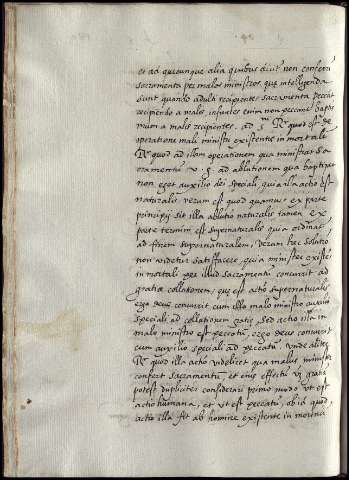 et ad quicunque alia quibus dicit non conferri
sacramenta per malos ministros, quę intelligenda
sunt quando adulti recipientes sacramenta peccāt
recipiendo a malis, infantes enim non peccant baptis
mum a malis recipientes, ad 3m Rx quod est de
operatione mali ministri existentis in mortali
Rx quod ad illam operationem qua ministrat Sa
cramentū v g. ad ablutionem qua baptizat
non eget auxilio dei speciali, quia illa actio est
naturalis. verum est quod quamuis ex parte
principij sit illa ablutio naturalis tamen ex
parte termini est supernaturalis quia ordinat
ad finem supernaturalem, Verum hęc solutio
non videtur satisfacere, quia minister existēs
in mortali per illud Sacramentū concurrit ad
gratię collationem, quę est actio supernaturalis
ergo deus concurrit cum illo malo ministro auxilio
speciali ad collationem gratię, sed actio illa in
malo ministro est peccatū, ergo deus concurrit
cum auxilio speciali ad peccatū, Vnde aliter
Rx quod illa actio videlicet qua malus minister
confert sacramentū, et eius effectū vz gratiā
potest dupliciter considerari primo modo vt est
actio humana, et vt est peccatū, ob id quod,
actio illa fit ab homine existente in mortali